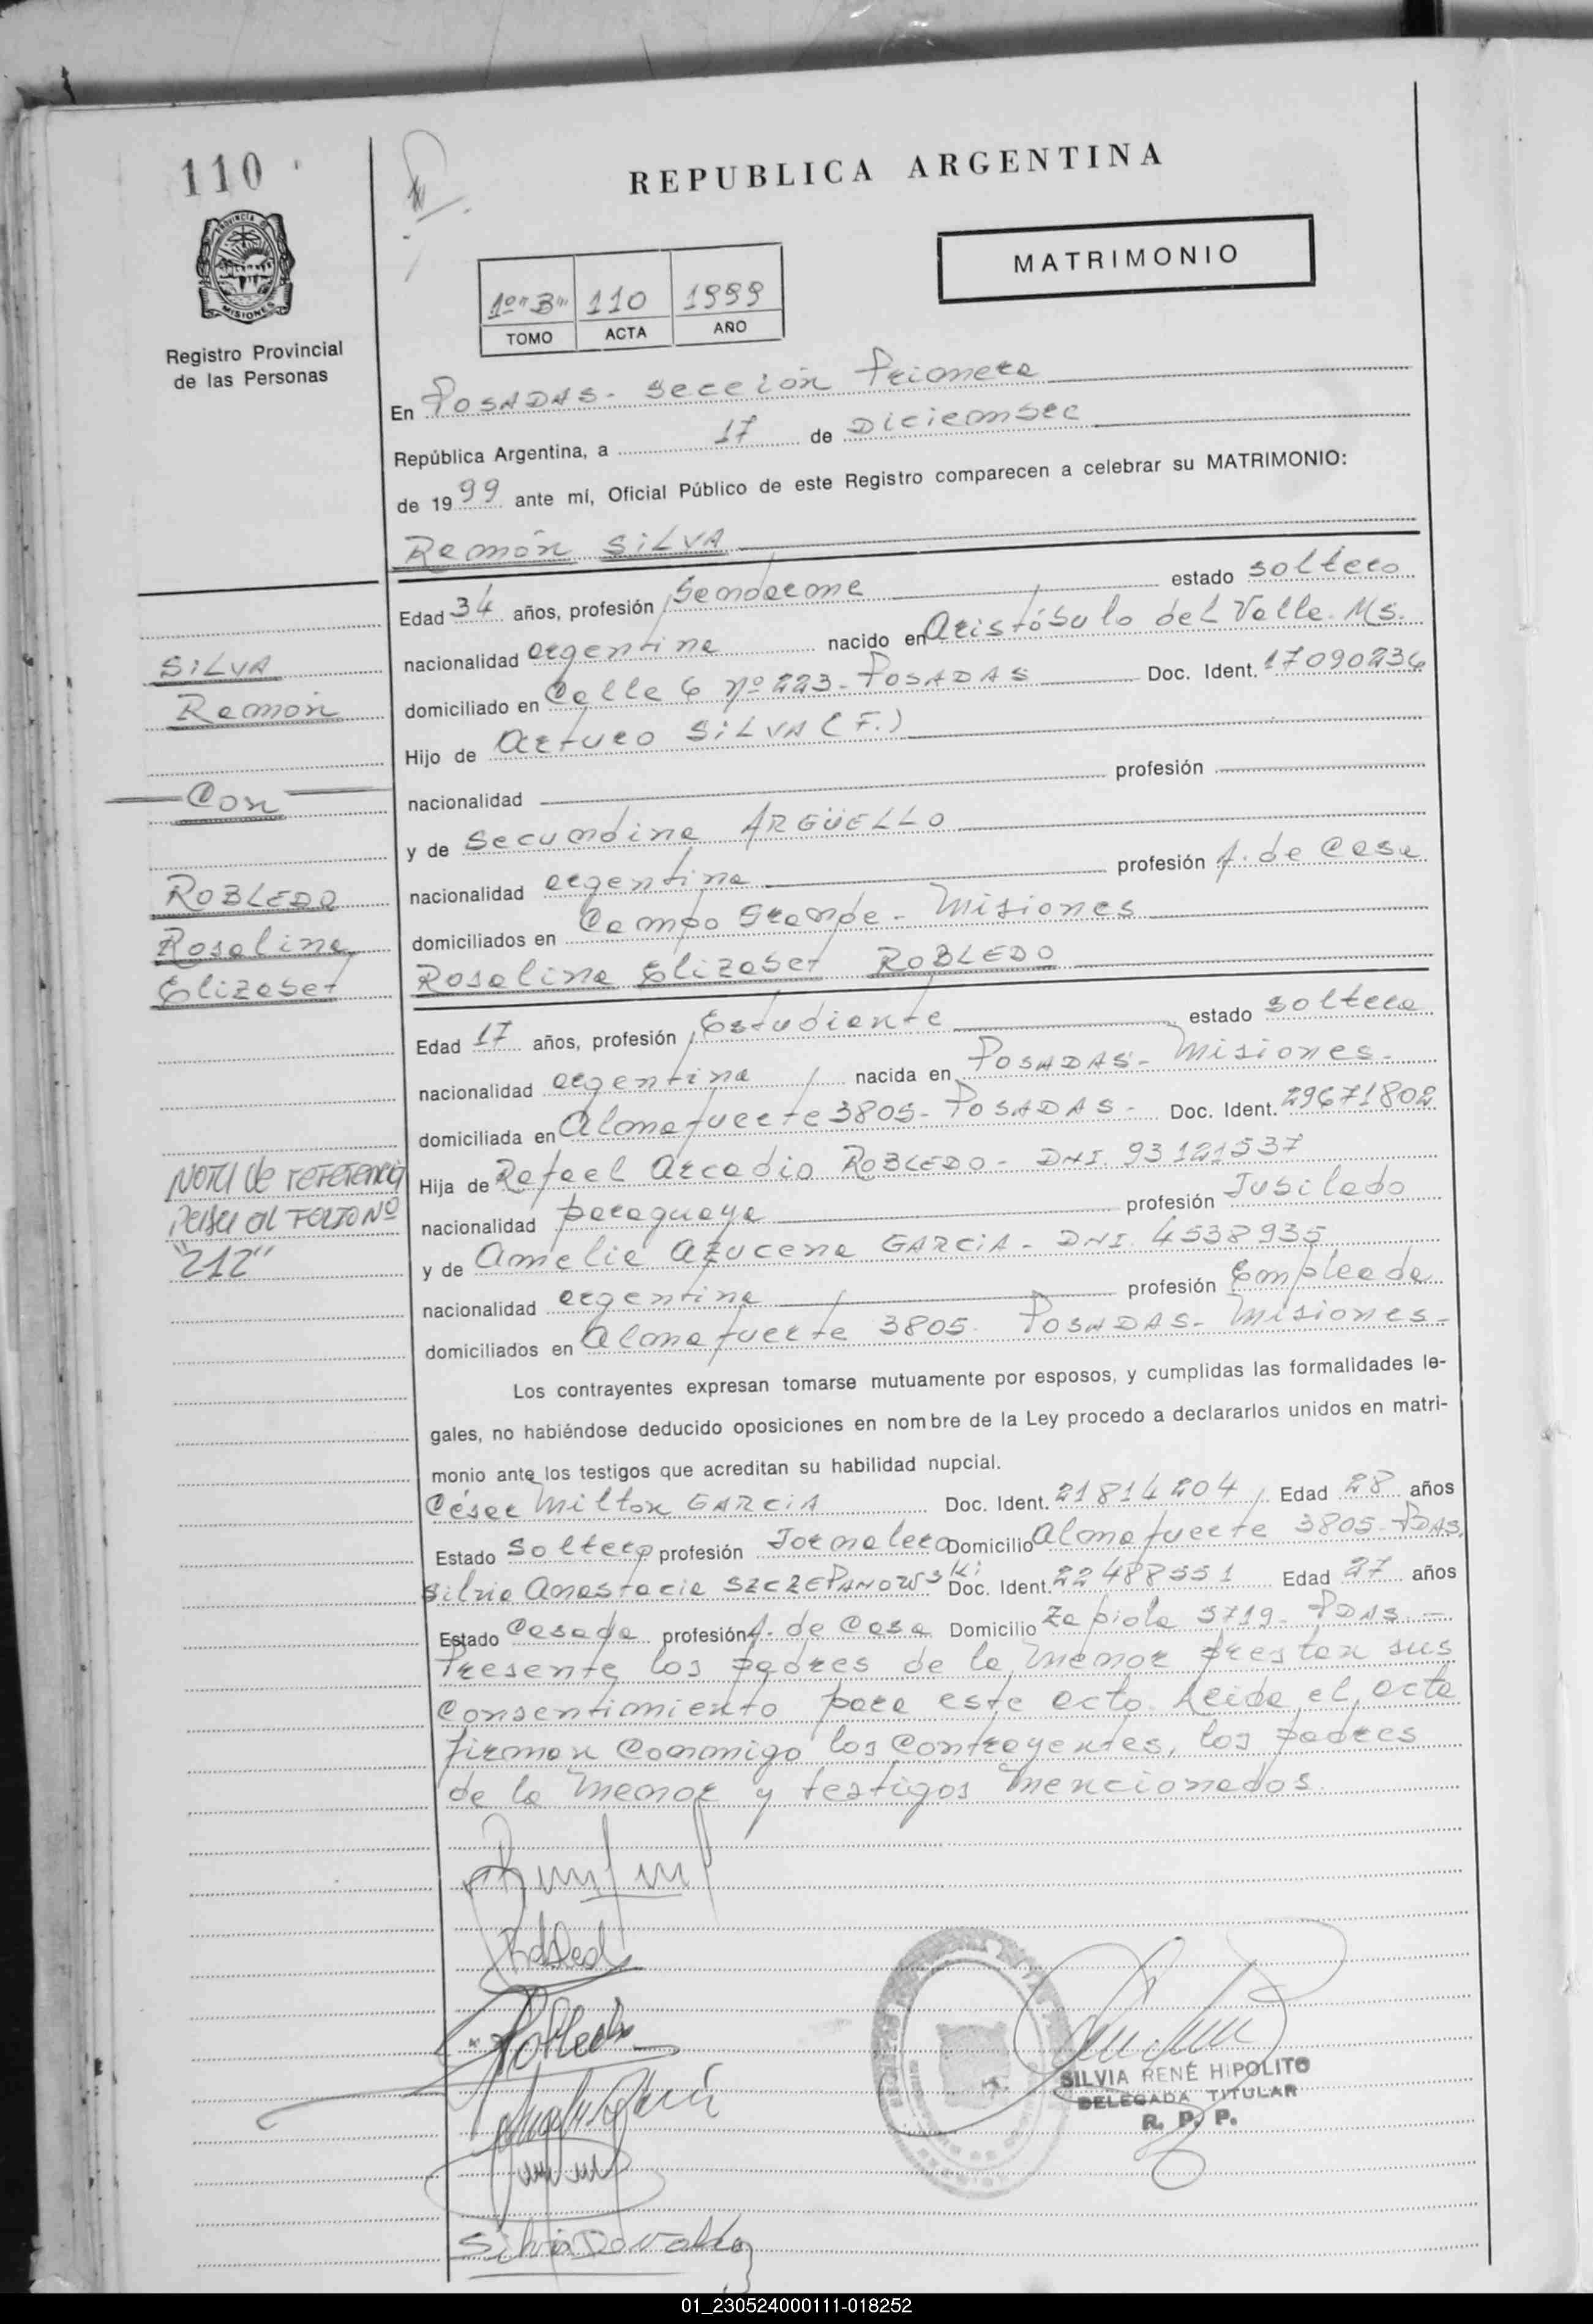 110
REPUBLICA ARGENTINA
MATRIMONIO
1º "B" 110 1999
TOMO ACTA AÑO
PROVINCIA DE MISIONES
Registro Provincial
de las Personas
En POSADAS - Sección Primera
República Argentina, a 17 de Diciembre
de 1999 ante mí, Oficial Público de este Registro comparecen a celebrar su MATRIMONIO:
Ramón SILVA
Edad 34 años, profesión Gendarme estado soltero
nacionalidad argentina nacido en Aristóbulo del Valle. Ms.
domiciliado en Calle 6 nº 223 - POSADAS Doc. Ident. 17090236
Hijo de Arturo SILVA (F.)
nacionalidad profesión
y de Secundina ARGÜELLO
nacionalidad argentina profesión A. de Casa
domiciliados en Campo Grande - Misiones
Rosalina Elizabet ROBLEDO
Edad 17 años, profesión Estudiante estado soltera
nacionalidad argentina nacida en POSADAS - Misiones -
domiciliada en Almafuerte 3805 - POSADAS - Doc. Ident. 29671802
Hija de Rafael Arcadio ROBLEDO - DNI. 93121537
nacionalidad paraguaya profesión Jubilado
y de Amelia Azucena GARCIA - DNI. 4538935
nacionalidad argentina profesión Empleada
domiciliados en Almafuerte 3805. POSADAS - Misiones -
Los contrayentes expresan tomarse mutuamente por esposos, y cumplidas las formalidades le-
gales, no habiéndose deducido oposiciones en nombre de la Ley procedo a declararlos unidos en matri-
monio ante los testigos que acreditan su habilidad nupcial.
César Milton GARCIA Doc. Ident. 21814204 Edad 28 años
Estado Soltero profesión Jornalero Domicilio Almafuerte 3805 - PDAS.
Silvia Anastacia SZCZEPANOWSKi Doc. Ident. 22488551 Edad 27 años
Estado Casada profesión A. de Casa Domicilio Zapiola 5719 - PDAS. -
Presente los padres de la menor prestan sus
Consentimiento para este acto. Leida el acta
firman Conmigo los Contrayentes, los padres
de la menor y testigos mencionados.
SILVA
Ramón
Con
ROBLEDO
Rosalina
Elizabet
NOTA de referencia
pasa al Folio Nº
"212"
SILVIA RENÉ HIPOLITO
DELEGADA TITULAR
R. P. P.
01_230524000111-018252